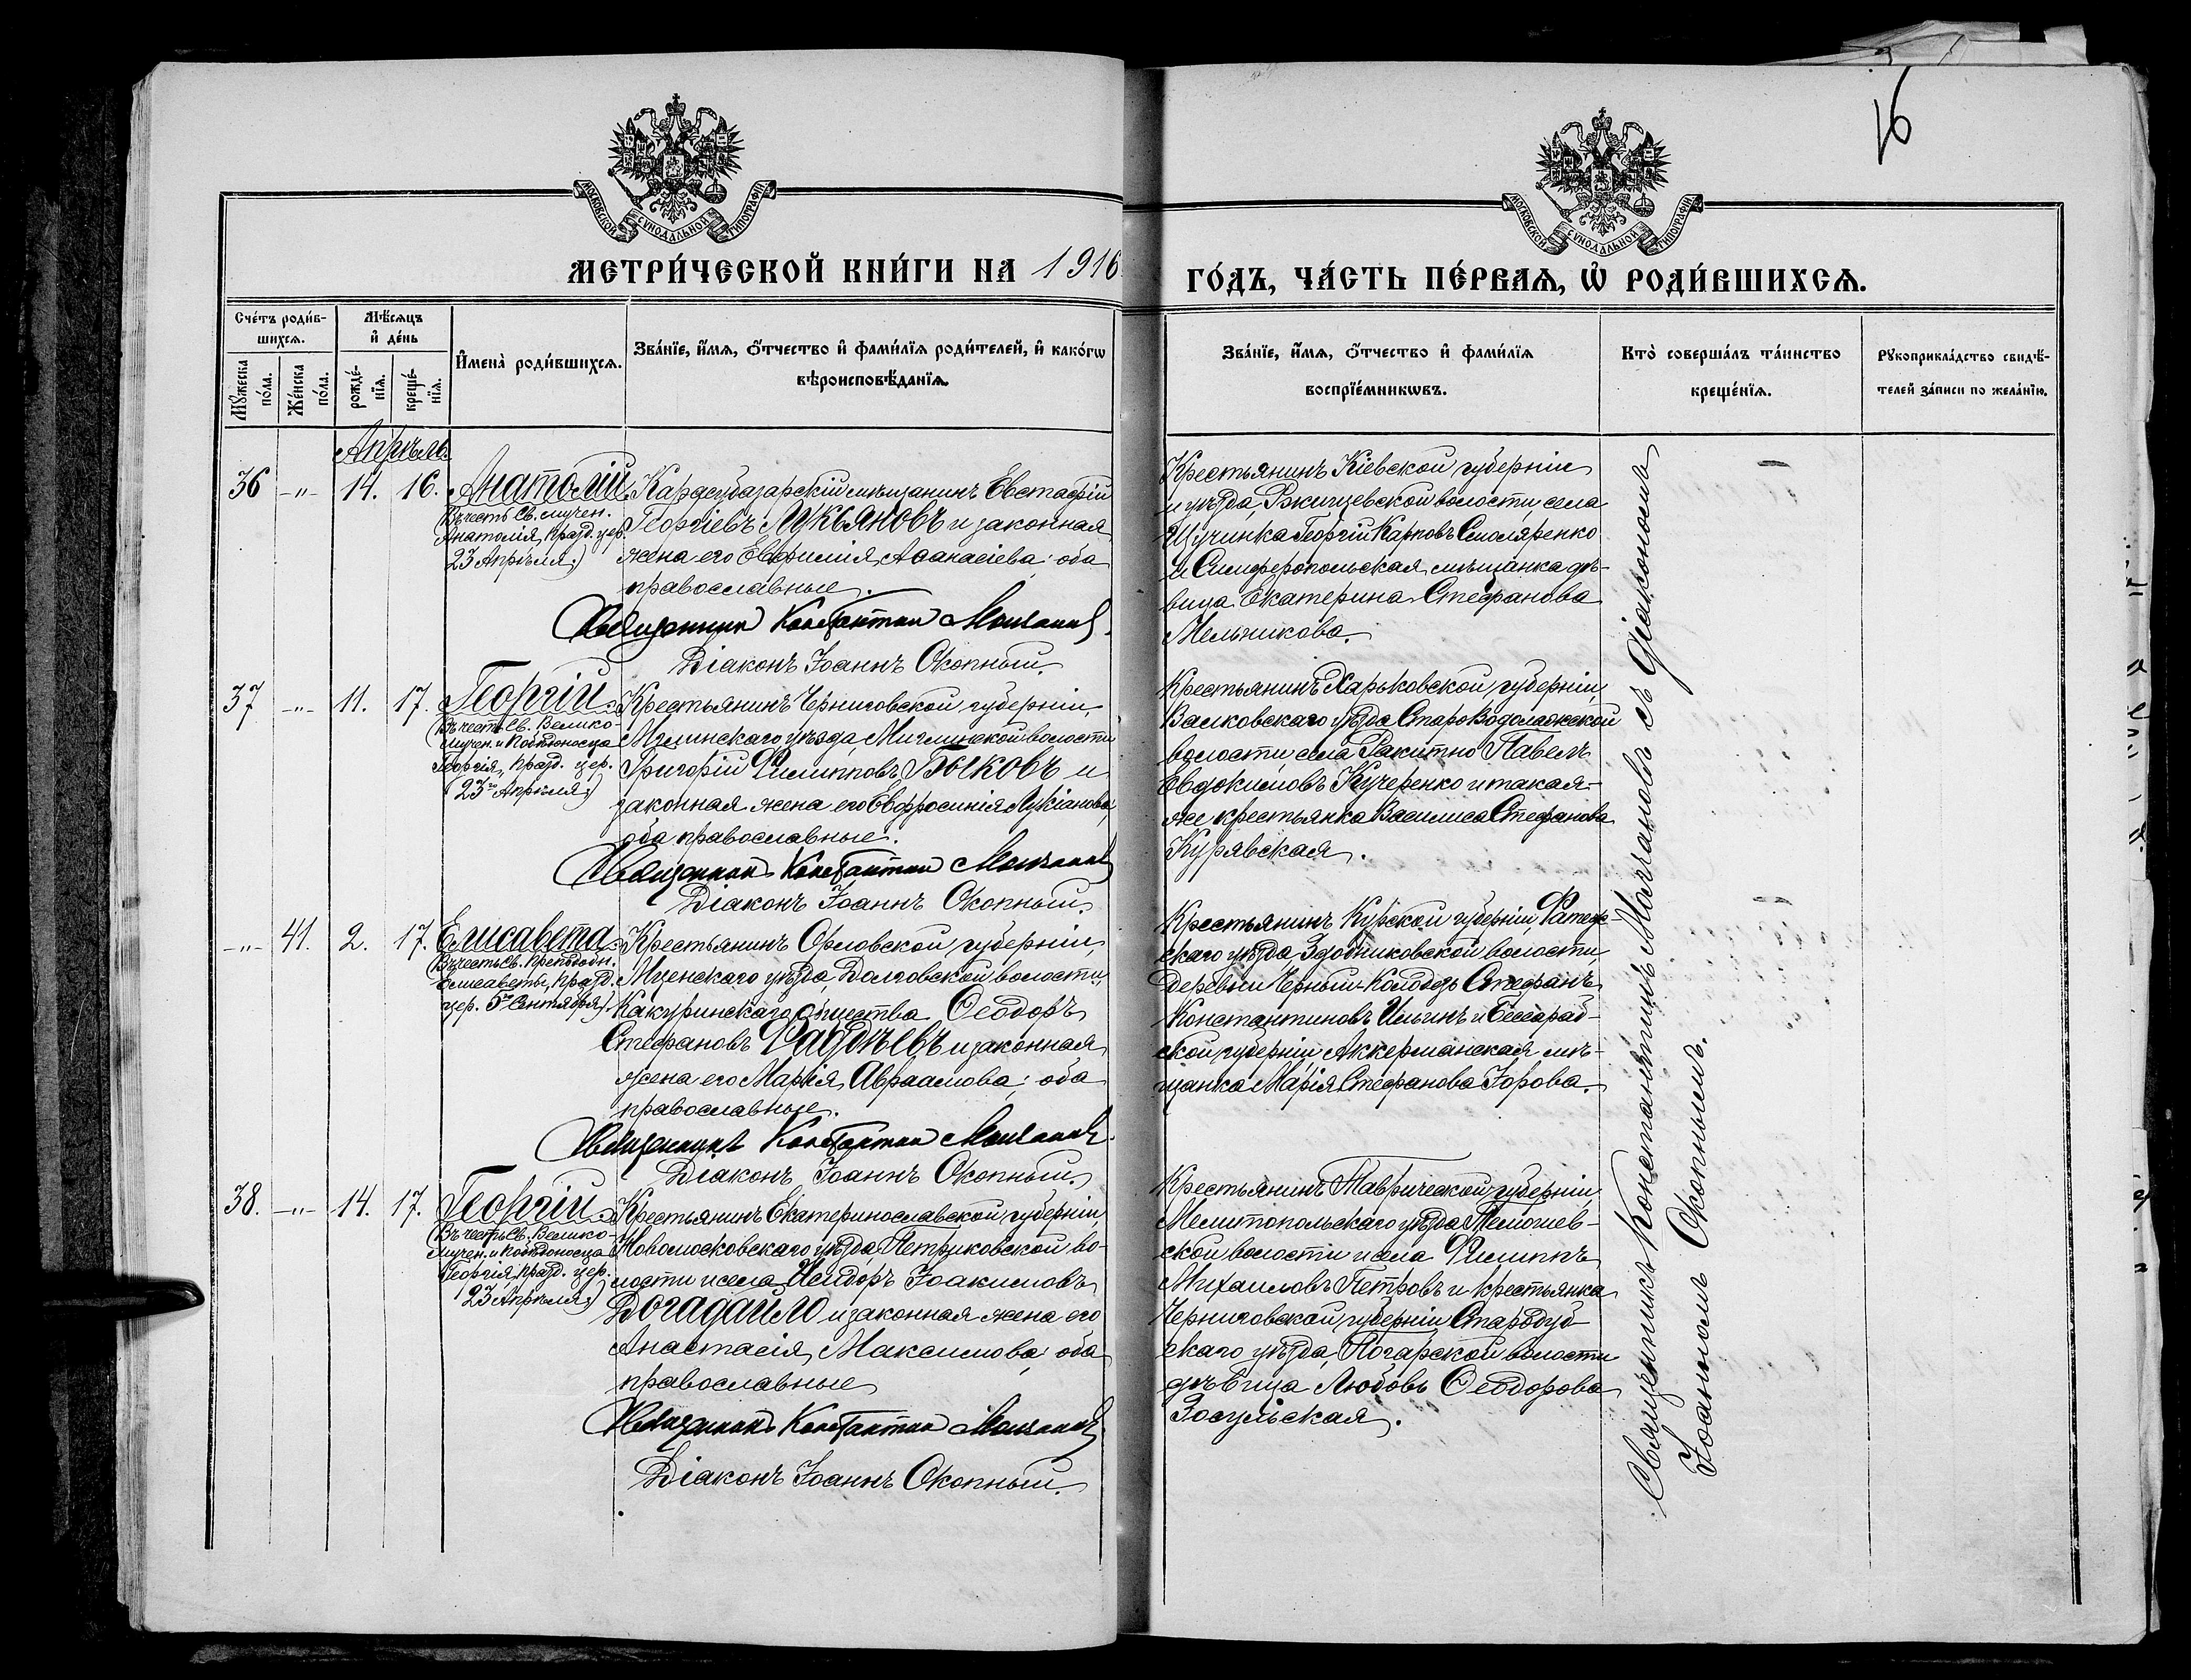 16
МОСКОВСКОЙ СУНОДАЛЬНОЙ ТИПОГРАФІИ
МОСКОВСКОЙ СУНОДАЛЬНОЙ ТИПОГРАФІИ
МЕТРИ́ЧЕСКОЙ КНИ́ГИ НА 1916
ГО́ДЪ, ЧА́СТЬ ПЕ́РВАѦ, Ѡ҆ РОДИ́ВШИХСѦ.
Сче́тъ роди́в-
шихсѧ.
Мѣ́сѧцъ
и҆ де́нь
Мꙋ́жеска
по́ла.
Же́нска
по́ла.
рожде́-
нїѧ.
креще́-
нїѧ.
И҆мена̀ роди́вшихсѧ.
Зва́нїе, и҆́мѧ, ѻ҆́тчество и҆ фами́лїѧ роди́телей, и҆ како́гѡ
вѣроисповѣ́данїѧ.
Зва́нїе, и҆́мѧ, ѻ҆́тчество и҆ фами́лїѧ
воспрїе́мникѡвъ.
Кто̀ соверша́лъ та́инство
креще́нїѧ.
Рꙋкоприкла́дство свидѣ́-
телей за́писи по жела́нїю.
Апрѣль.
36 -„- 14. 16. Анатолій
Въ честь Св. мучен.
Анатолія, празд. цер.
23 Апрѣля.)
Карасубазарскій мѣщанинъ Евстафій
Георгіевъ Лукьяновъ и законная
жена его Евфимія Аѳанасіева; оба
православные.
Священникъ Константинъ Молчановъ
Діаконъ Іоаннъ Окопный.
Крестьянинъ Кіевской губерніи
и уѣзда, Ржищевской волости, села
Щучинка Георгій Карповъ Смоляренко
и Симферопольская мѣщанка дѣ-
вица Екатерина Стефанова
Мельникова.
37 -„- 11. 17. Георгій
Въ честь Св. Велико-
мучен. и Побѣдоносца
Георгія, празд. цер.
23го Апрѣля.)
Крестьянинъ Черниговской губерніи,
Мглинскаго уѣзда Мглинской волости
Григорій Филипповъ Бычковъ и
законная жена его Евфросинія Лукіанова;
оба православные.
Священникъ Константинъ Молчановъ
Діаконъ Іоаннъ Окопный.
Крестьянинъ Харьковской губерніи,
Валковскаго уѣзда Старо Водолажской
волости, села Ракитно Павелъ
Евдокимовъ Кучеренко и такая-
же крестьянка Василиса Стефанова
Курявская.
-„- 41. 2. 17. Елисавета
Въ честь Св. Преподобн.
Елисаветы, празд.
цер. 5го Сентября.)
Крестьянинъ Орловской губерніи,
Мценскаго уѣзда, Долговской волости,
Какуринскаго общества Ѳеодоръ
Стефановъ и законная
жена его Марія Авраамова; оба
православные.
Священникъ Константинъ Молчановъ.
Діаконъ Іоаннъ Окопный.
Крестьянинъ Курской губерніи, Фатеж-
скаго уѣзда, волости
деревни Черный Колодезь Стефанъ
Константиновъ Ильинъ и Бессараб-
ской губерніи, Аккерманская мѣ-
щанка Марія Стефанова Іорова.
38. -„- 14. 17. Георгій
Въ честь Св. Велико-
мучен. и Побѣдоносца
Георгія, празд. цер.
23 Апрѣля.)
Крестьянинъ Екатеринославской губерніи,
Новомосковскаго уѣзда, Петриковской во-
лости и села Исидоръ Іоакимовъ
Догадайло и законная жена его
Анастасія Максимова; оба
православные
Священникъ Константинъ Молчановъ
Діаконъ Іоаннъ Окопный.
Крестьянинъ Таврической губерніи,
Мелитопольскаго уѣзда
ской волости и села Филиппъ
Михаиловъ Петровъ и крестьянка
Черниговской губерніи Стародуб-
скаго уѣзда, Погарской волости
дѣвица Любовь Ѳеодорова
Зосульская.
Священникъ Константинъ Молчановъ съ діакономъ
Іоанномъ Окопнымъ.